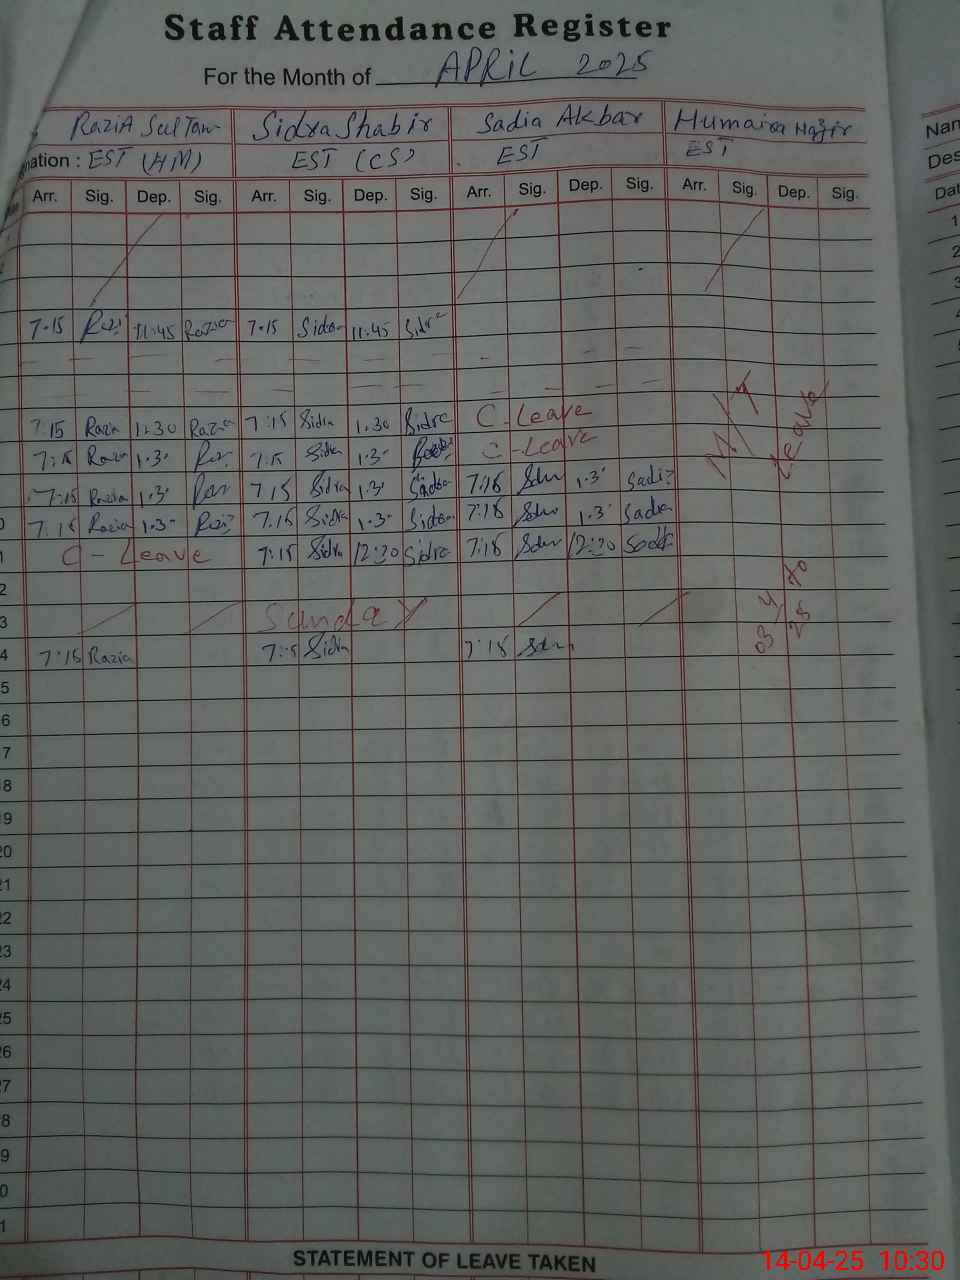 Staff Attendance Register
For the Month of APRIL 2025
RaziA Sultan Sidra Shabir Sadia Akbar Humaira Nazir
nation : EST (HM) EST (CS) EST EST
Arr. Sig. Dep. Sig. Arr. Sig. Dep. Sig. Arr. Sig. Dep. Sig. Arr. Sig. Dep. Sig.
7-15 11:45 Razia 7-15 Sidra 11:45 Sidra
7:15 Razia 1:30 Razia 7:15 Sidra 1.30 Sidra C-Leave
7:15 Razia 1.3- 7:15 Sidra 1.3- C-Leave
7:15 Razia 1.3- 7:15 Sidra 1.3- Sidra 7:15 1.3- Sadia
0 7:15 Razia 1.3- 7:15 Sidra 1.3- Sidra 7:15 1.3- Sadia
1 C-Leave 7:15 Sidra 12:30 Sidra 7:15 12:30 Sadia
2
3 Sunday
4 7:15 Razia 7:15 Sidra 7:15
Leave
03 4 to
25
5
6
7
8
19
20
21
22
23
24
25
26
27
8
9
0
1
STATEMENT OF LEAVE TAKEN
Nam
Des
Dat
1
2
3
14-04-25 10:30